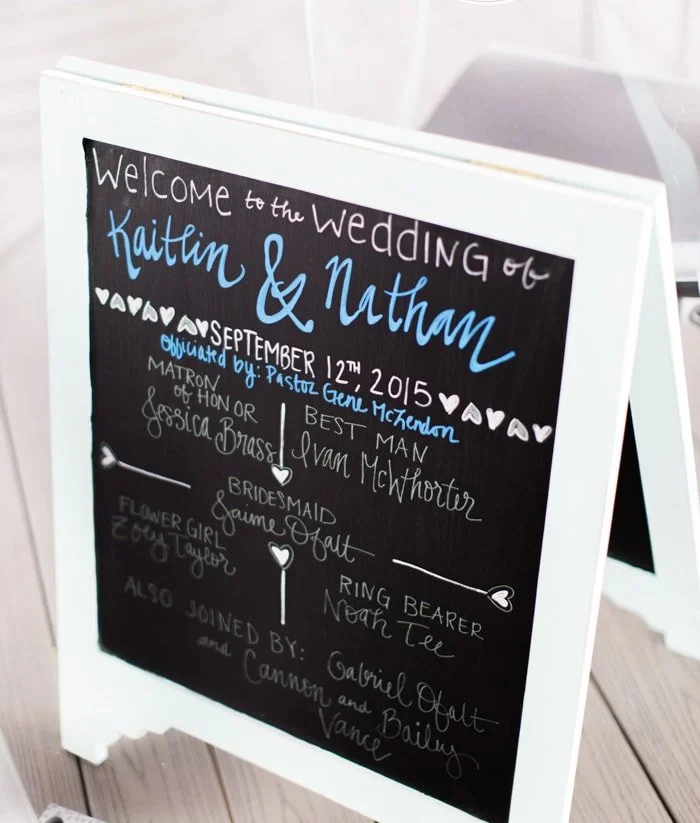 Welcome to the Wedding of
Kaitlin & Nathan
SEPTEMBER 12TH, 2015
Officiated by: Pastor Gene McZendon
MATRON of HONOR
Jessica Brass
BEST MAN
Ivan McWhorter
BRIDESMAID
Jaime Ofalt
FLOWER GIRL
Zoey Taylor
RING BEARER
Noah Tee
ALSO JOINED BY: Gabriel Ofalt
and Cannon and Bailey
Vance